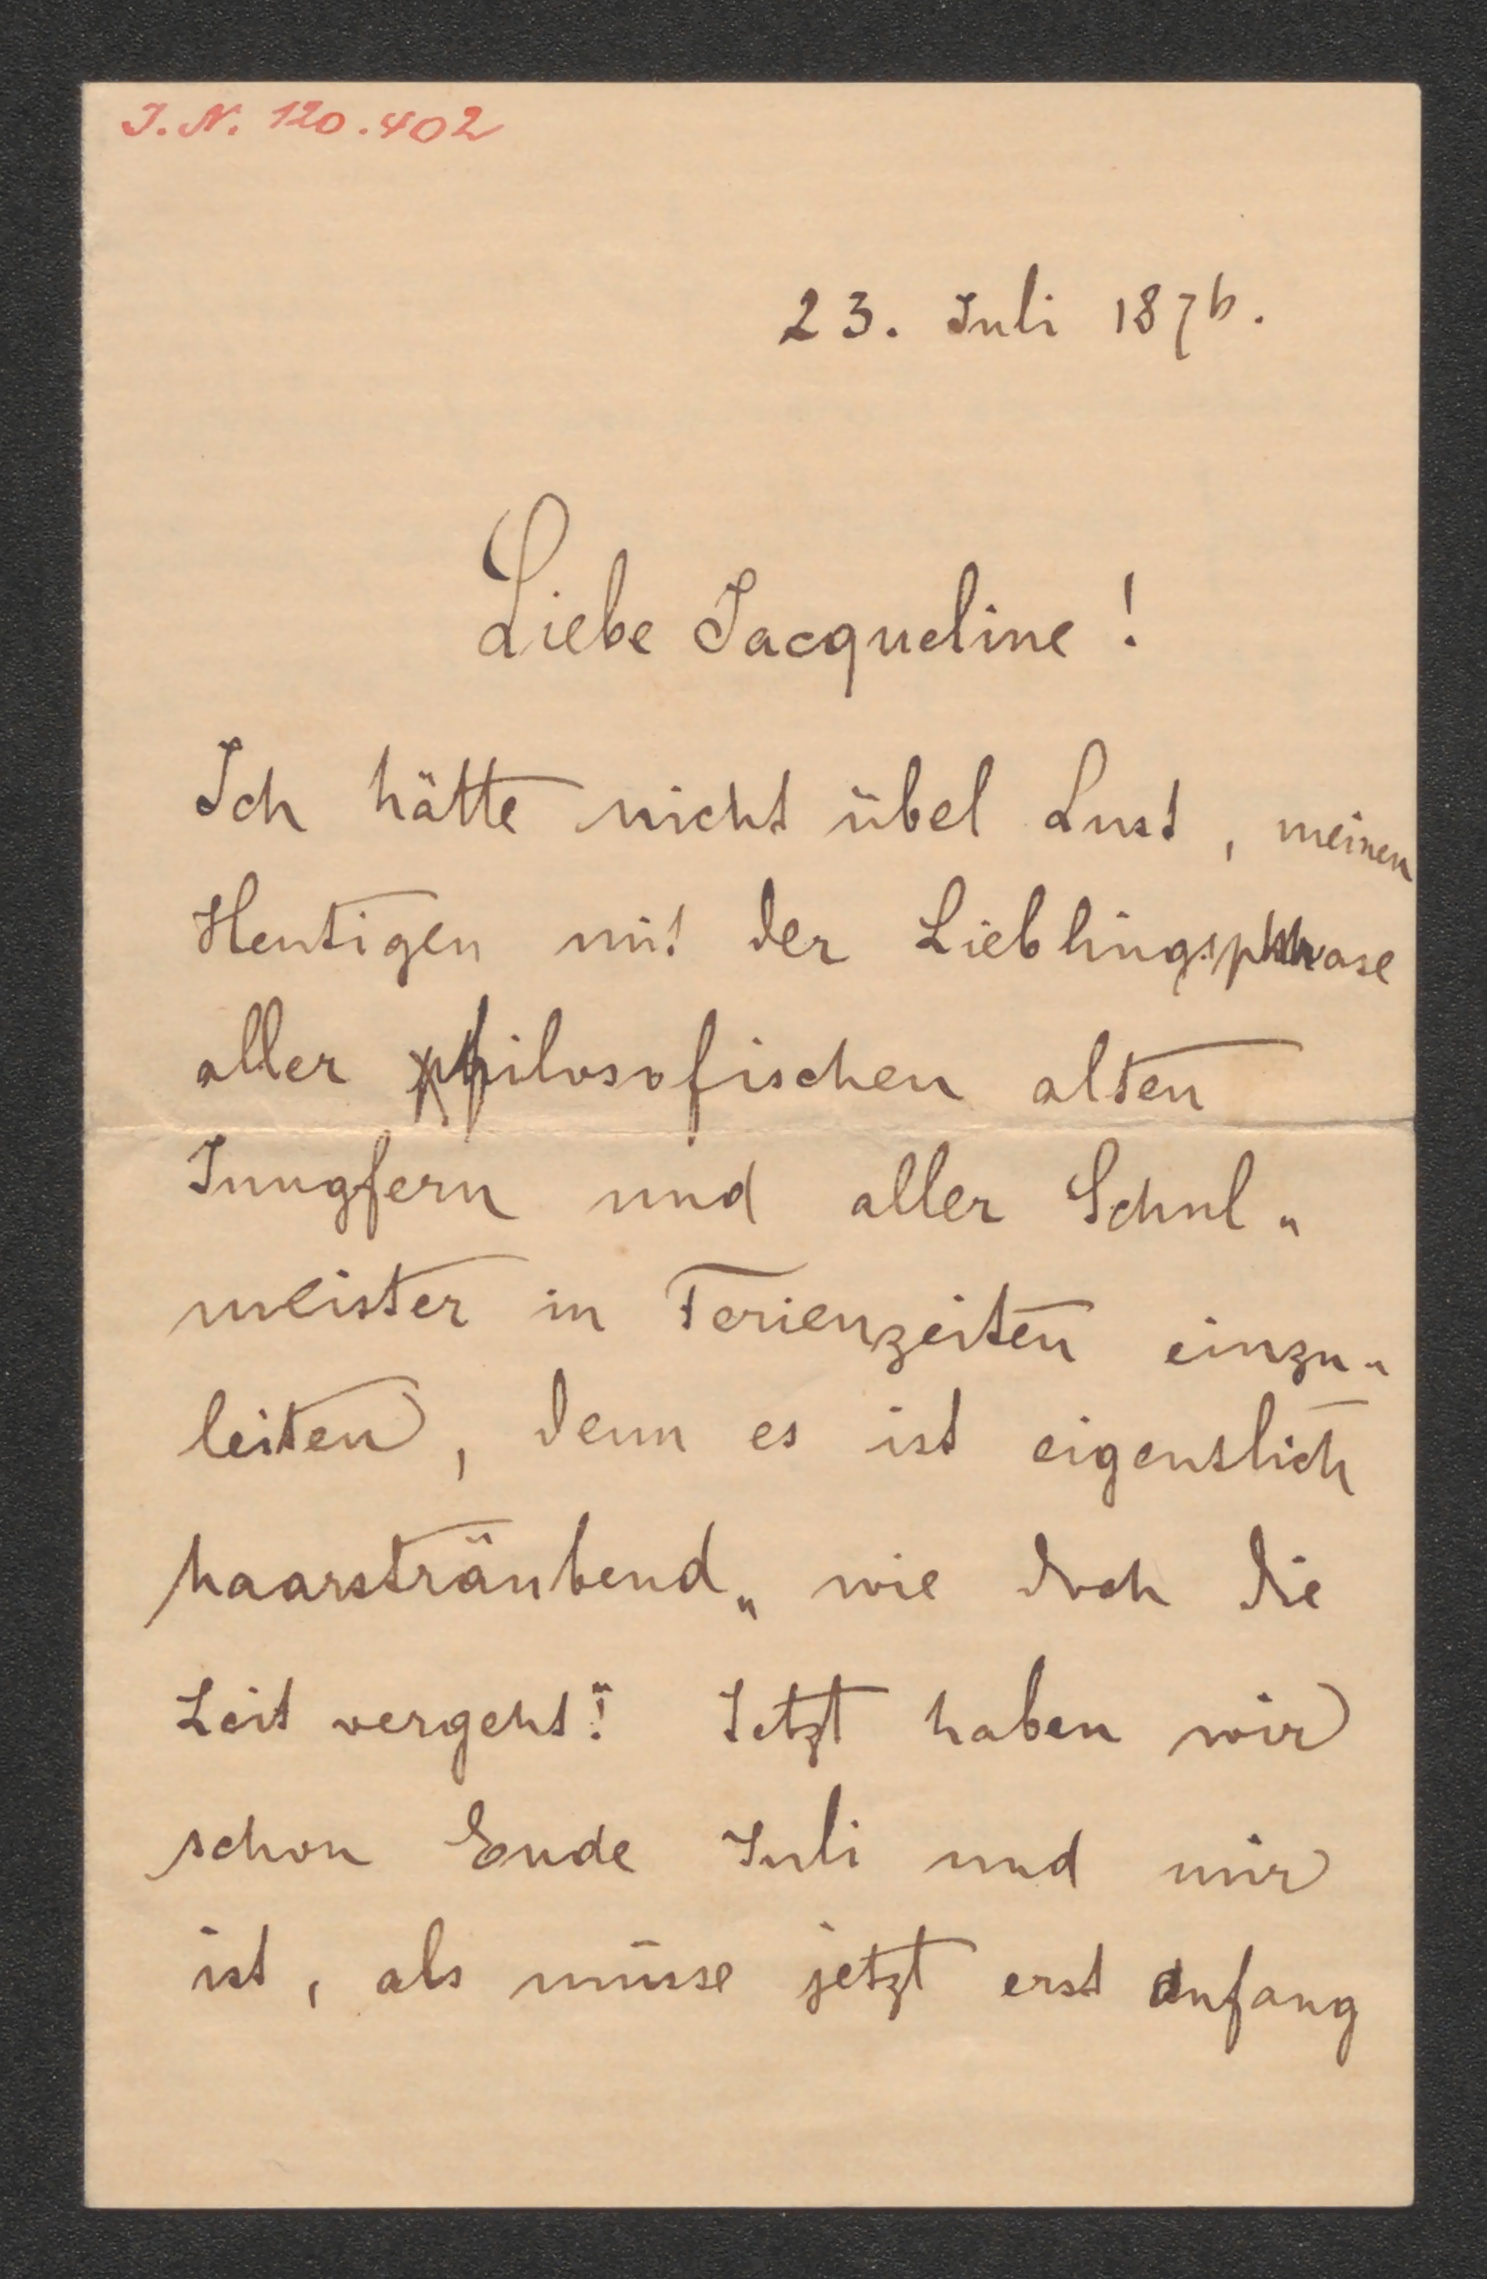 I. N. 120.402
23. Juli 1876.
Liebe Jacqueline!
Ich hätte nicht übel Lust, meinen
Heutigen mit der Lieblingsphrase
aller philosofischen alten
Jungfern und aller Schul„
meister in Ferienzeiten einzu„
leiten, denn es ist eigentlich
haarsträubend „wie doch die
Zeit vergeht!“ Jetzt haben wir
schon Ende Juli und mir
ist, als müsse jetzt erst Anfang